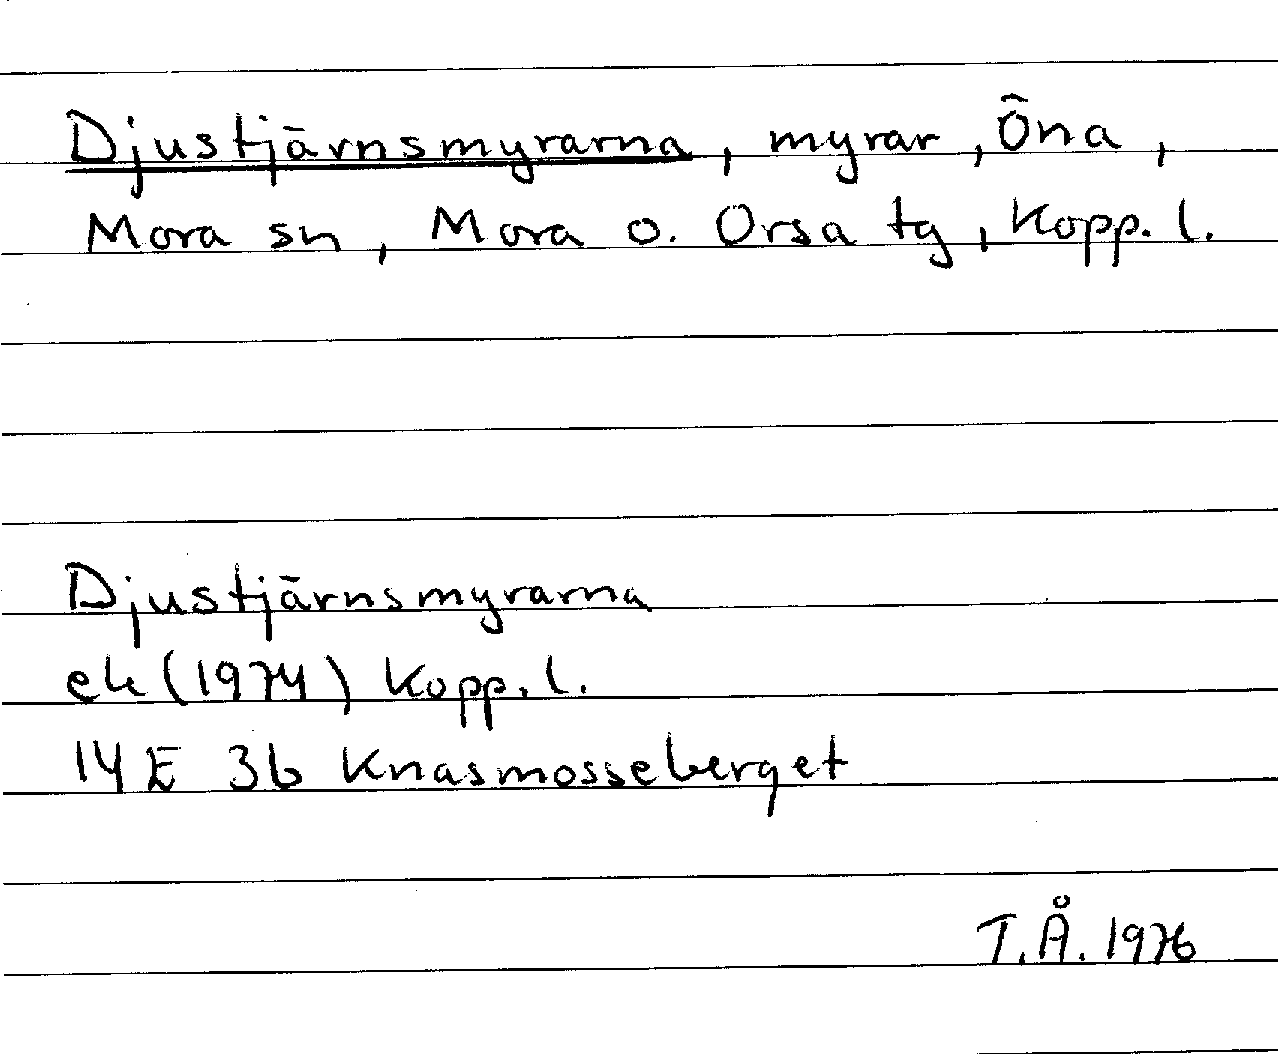 Djustjärnsmyrarna, myrar, Öna,
Mora sn, Mora o. Orsa tg, Kopp. l.
Djustjärnsmyrarna
ek (1974) Kopp. l.
14 E 3b Knasmosseberget
T.Å. 1976